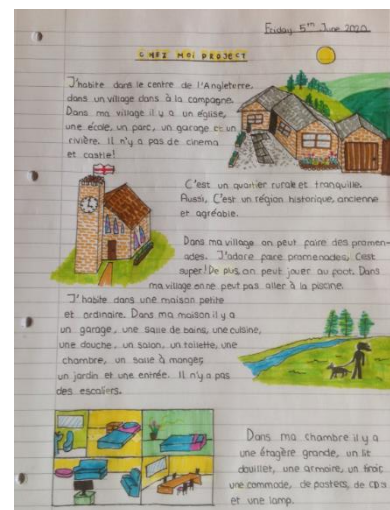 Friday 5TH June 2020
CHEZ MOI PROJECT
J'habite dans le centre de l'Angleterre,
dans un village dans à la campagne.
Dans ma village il y a un église,
une école, un parc, un garage et un
rivière. Il n'y a pas de cinema
et castle!
C'est un quartier rurale et tranquille.
Aussi, C'est un région historique, ancienne
et agréable.
Dans ma village on peut faire des promen-
ades. J'adore faire promenades, C'est
super! De plus on peut jouer au foot. Dans
ma village on ne peut pas aller à la piscine.
J'habite dans une maison petite
et ordinaire. Dans ma maison il y a
un garage, une salle de bains, une cuisine,
une douche, un salon, un toilette, une
chambre, un salle à manger,
un jardin et une entrée. Il n'y a pas
des escaliers.
Dans ma chambre il y a
une étagère grande, un lit
douillet, une armoire, un tiroir,
une commode, de posters, de CDs
et une lamp.